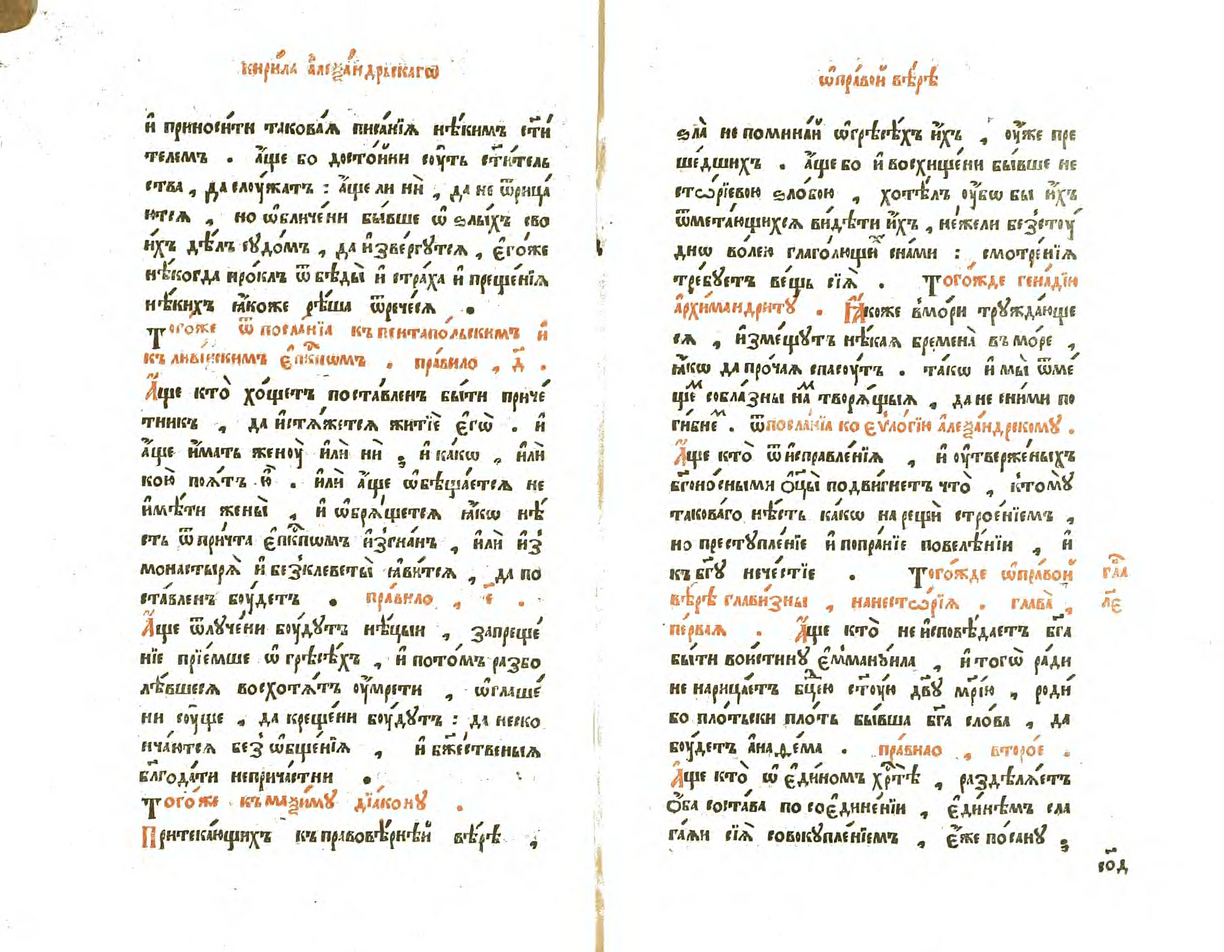 кири́ла а҆леѯа́ндрьскагѡ
и҆ приноси́ти такова́ѧ писа́нїѧ нѣ́кимъ ст҃и
телемъ . а҆́ще бо досто́йни сꙋть ст҃и́тель
ства , да слꙋ́жатъ : а҆́ще ли нѝ , да не ѿрица́
ютсѧ , но ѡ҆бличе́ни бы́вше ѡ҆ ѕлы́хъ сво
и́хъ дѣ́лъ сꙋдо́мъ , да и҆зве́ргꙋтсѧ , є҆го́же
нѣ́когда проклъ ѿ бѣды̀ и҆ стра́ха и҆ преще́нїѧ
нѣ́кихъ ꙗ҆́коже рѣ́ша ѿрече́сѧ .
Того́же ѿ посла́нїа къ пентапо́льскимъ и҆
къ ливі́йскимъ є҆пи́кпѡмъ . пра́вило , д҃ .
А҆́ще кто̀ хо́щетъ поста́вленъ бы́ти приче́
тникъ , да и҆стѧ́жетсѧ житїѐ є҆гѡ̀ . и҆
а҆́ще и҆́мать женꙋ̀ и҆лѝ нѝ , и҆ ка́кѡ , и҆лѝ
кою̀ поѧ́тъ ю҆̀ . и҆лѝ а҆́ще ѡ҆бѣща́етсѧ не
и҆мѣ́ти жены̀ , и҆ ѡ҆брѧ́щетсѧ ꙗ҆́кѡ нѣ́
сть ѿ при́чта є҆пи́кпѡмъ и҆згна́нъ , и҆лѝ и҆з̾
монастырѧ̀ и҆ без̾клеветы̀ ꙗ҆ви́тсѧ , да по
ста́вленъ бꙋ́детъ . пра́вило , є҃ .
А҆́ще ѿлꙋче́ни бꙋ́дꙋтъ нѣ́цыи , запреще́
нїе прїе́мше ѡ҆ грѣсѣ́хъ , и҆ пото́мъ разбо
лѣ́вшесѧ восхотѧ́тъ ᲂу҆мре́ти , ѡ҆глаше́
ни сꙋ́ще , да креще́ни бꙋ́дꙋтъ : да не ско
нча́ютсѧ без̾ ѡ҆бще́нїѧ , и҆ бж҃е́ственыѧ
бл҃года́ти неприча́стни .
Того́же къ маѯи́мꙋ дїа́конꙋ .
Притека́ющихъ къ правовѣ́рнѣй вѣ́рѣ ,
ѡ҆ пра́вой вѣ́рѣ
ѕла̀ не помина́й ѡ҆ грѣсѣ́хъ и҆́хъ , ᲂу҆́же пре
ше́дшихъ . а҆́ще бо и҆ восхище́ни бы́вше не
сто́рїевою ѕло́бою , хотѣ́лъ ᲂу҆́бѡ бы и҆́хъ
ѿмета́ющихсѧ ви́дѣти и҆́хъ , не́жели без̾стꙋ́
днѡ во́лею глаго́лющихъ с на́ми : смотре́нїѧ
тре́бꙋетъ ве́щь сїѧ̀ . Того́жде гена́дїю
а҆рхимандри́тꙋ . Ꙗ҆́коже в̾мо́ри трꙋжда́юще
сѧ , и҆зме́щꙋтъ нѣ́каѧ бремена̀ въ мо́ре ,
ꙗ҆́кѡ да про́чаѧ спасꙋ́тъ . та́кѡ и҆ мы̀ ѿме́
щемъ собла́зны намъ творѧ́щыѧ , да не с ни́ми по
ги́бнемъ . ѿ посла́нїа ко є҆ѵло́гїю а҆леѯа́ндрскомꙋ .
А҆́ще кто̀ ѿ и҆справле́нїѧ , и҆ ᲂу҆тверже́ныхъ
бг҃оно́сными ѻ҆ц҃ы̀ подви́гнетъ что̀ , к̾томꙋ̀
такова́го нѣ́сть ка́кѡ нарещѝ строе́нїемъ ,
но преступле́нїе и҆ попра́нїе повелѣ́нїи , и҆
къ бг҃ꙋ нече́стїе . Того́жде ѡ҆ пра́вой
вѣ́рѣ глави́зны , на несто́рїѧ . глава̀ ,
пе́рваѧ . А҆́ще кто̀ не и҆сповѣ́даетъ бг҃а
бы́ти вои́стинꙋ є҆ммані́ила , и҆ тогѡ̀ ра́ди
не нарица́етъ бц҃ею ст҃ꙋ́ю дв҃ꙋ мр҃і́ю , родѝ
бо пло́тьски пло́ть бы́вша бг҃а сло́ва , да
бꙋ́детъ а҆на́ѳема . пра́вило , второ́е .
А҆́ще кто̀ ѡ҆ є҆ди́номъ хрⷭ҇тѣ̀ , раздѣлѧ́етъ
ѻ҆́ба соста́ва по сое҆дине́нїи , є҆ди́нѣмъ сла
га́ѧи сїѧ̀ совокꙋпле́нїемъ , є҆́же по са́нꙋ ,
гл҃а
л҃є
сод